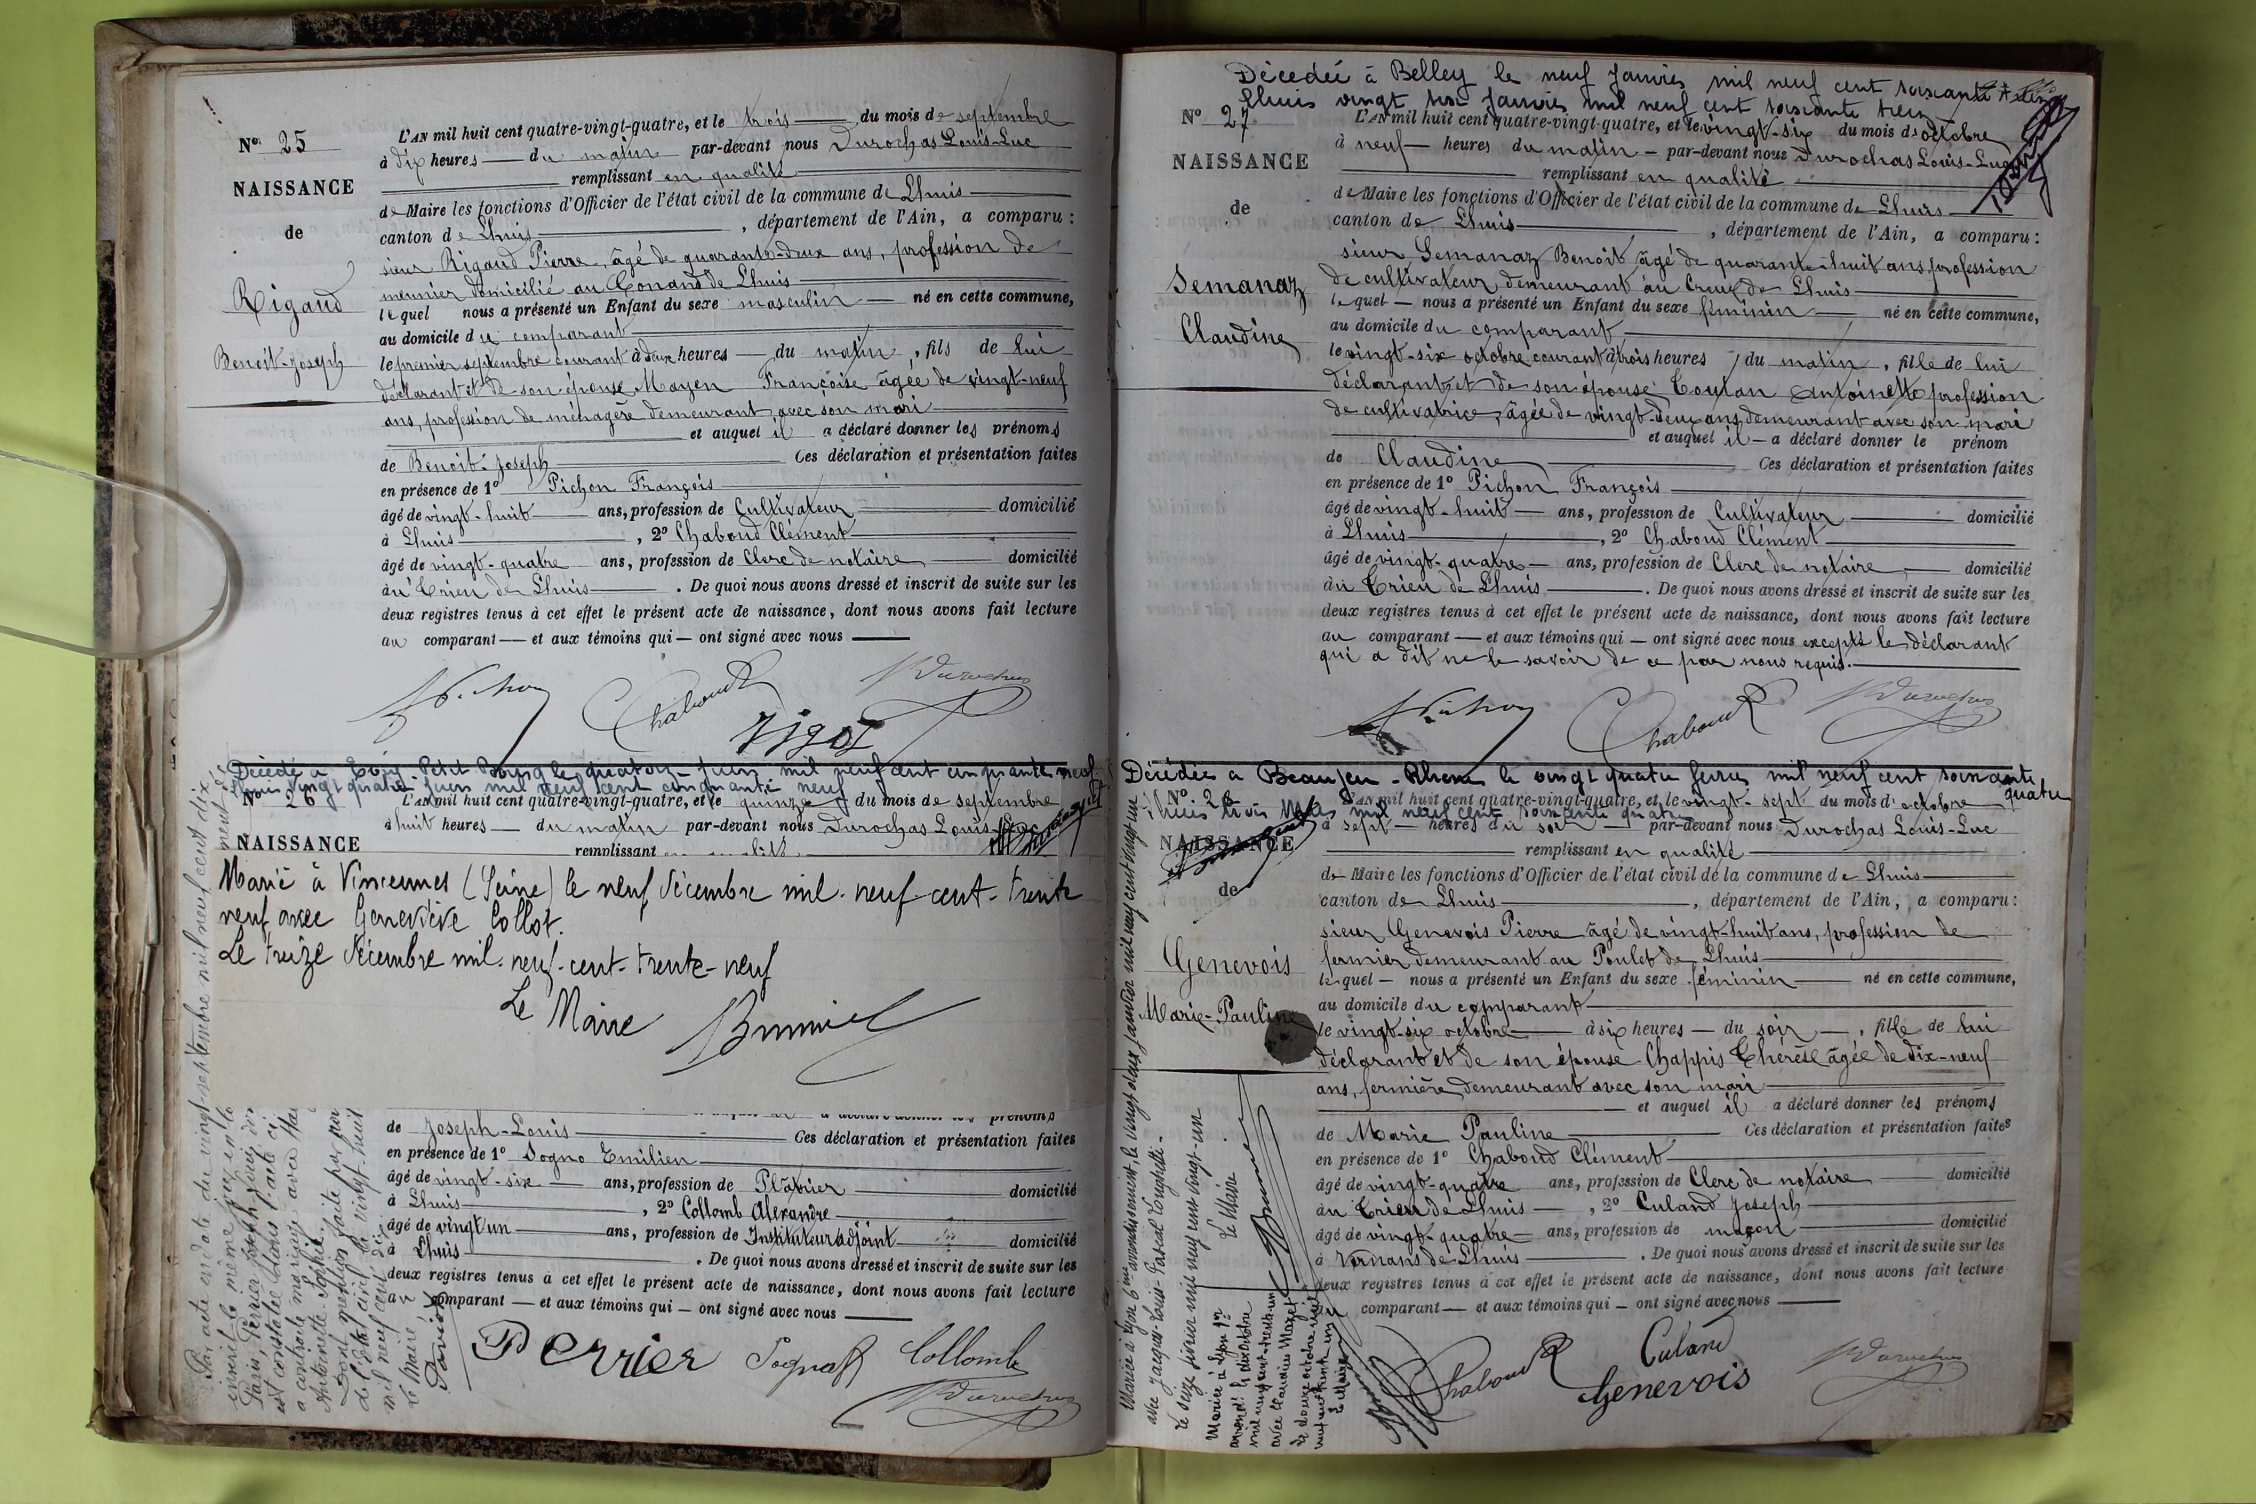 Nº 25
NAISSANCE
de
Rigaud
Benoit-Joseph
L'AN mil huit cent quatre-vingt-quatre, et le trois du mois de septembre
à dix heures du matin par-devant nous Durochas Louis-Luc
remplissant en qualité
de Maire les fonctions d'Officier de l'état civil de la commune de Lhuis
canton de Lhuis, département de l'Ain, a comparu :
sieur Rigaud Pierre, âgé de quarante-deux ans, profession de
meunier domicilié au Conand de Lhuis
lequel nous a présenté un Enfant du sexe masculin né en cette commune,
au domicile du comparant
le premier septembre courant à deux heures du matin, fils de lui
déclarant et de son épouse Mayen Françoise âgée de vingt-neuf
ans, profession de ménagère demeurant avec son mari
et auquel il a déclaré donner les prénoms
de Benoit-Joseph Ces déclaration et présentation faites
en présence de 1º Pichon François
âgé de vingt-huit ans, profession de Cultivateur domicilié
à Lhuis, 2º Chaboud Clément
âgé de vingt-quatre ans, profession de Clerc de notaire domicilié
au Crieu de Lhuis. De quoi nous avons dressé et inscrit de suite sur les
deux registres tenus à cet effet le présent acte de naissance, dont nous avons fait lecture
au comparant et aux témoins qui ont signé avec nous
Pichon Chaboud Durochas
rigot
Décédé à Evry Petit Bourg le quatorze juin mil neuf cent cinquante neuf
Lhuis vingt quatre juin mil neuf cent cinquante neuf
Nº 26
NAISSANCE
L'AN mil huit cent quatre-vingt-quatre, et le quinze du mois de septembre
à huit heures du matin par-devant nous Durochas Louis-Luc
remplissant
Marié à Vincennes (Seine) le neuf décembre mil-neuf-cent-trente
neuf avec Geneviève Collot.
Le treize décembre mil-neuf-cent-trente-neuf
Le Maire
de Joseph-Louis Ces déclaration et présentation faites
en présence de 1º Sogno Emilien
âgé de vingt-six ans, profession de Plâtrier domicilié
à Lhuis, 2º Collomb Alexandre
âgé de vingt un ans, profession de Instituteur adjoint domicilié
à Lhuis. De quoi nous avons dressé et inscrit de suite sur les
deux registres tenus à cet effet le présent acte de naissance, dont nous avons fait lecture
au comparant et aux témoins qui ont signé avec nous
Perrier Sogno Collomb
Durochas
Par acte en date du vingt-sept septembre mil neuf cent dix
Décédée à Belley le neuf Janvier mil neuf cent soixante treize
Lhuis vingt six janvier mil neuf cent soixante treize
Nº 27
NAISSANCE
de
Semanaz
Claudine
L'AN mil huit cent quatre-vingt-quatre, et le vingt-six du mois d'octobre
à neuf heures du matin par-devant nous Durochas Louis-Luc
remplissant en qualité
de Maire les fonctions d'Officier de l'état civil de la commune de Lhuis
canton de Lhuis, département de l'Ain, a comparu :
sieur Semanaz Benoit âgé de quarante-huit ans, profession
de cultivateur demeurant au Creux de Lhuis
lequel nous a présenté un Enfant du sexe féminin né en cette commune,
au domicile du comparant
le vingt-six octobre courant à trois heures du matin, fille de lui
déclarant et de son épouse Antoinette profession
de cultivatrice, âgée de vingt-deux ans, demeurant avec son mari
et auquel il a déclaré donner le prénom
de Claudine Ces déclaration et présentation faites
en présence de 1º Pichon François
âgé de vingt-huit ans, profession de Cultivateur domicilié
à Lhuis, 2º Chaboud Clément
âgé de vingt-quatre ans, profession de Clerc de notaire domicilié
au Crieu de Lhuis. De quoi nous avons dressé et inscrit de suite sur les
deux registres tenus à cet effet le présent acte de naissance, dont nous avons fait lecture
au comparant et aux témoins qui ont signé avec nous excepté le déclarant
qui a dit ne le savoir de ce par nous requis.
Pichon Chaboud Durochas
Décédée à Beaujeu - Rhône le vingt quatre février mil neuf cent soixante quatre
Lhuis trois Mars mil neuf cent soixante quatre
Nº 28
NAISSANCE
de
Genevois
Marie-Pauline
L'AN mil huit cent quatre-vingt-quatre, et le vingt-sept du mois d'octobre
à sept heures du soir par-devant nous Durochas Louis-Luc
remplissant en qualité
de Maire les fonctions d'Officier de l'état civil de la commune de Lhuis
canton de Lhuis, département de l'Ain, a comparu :
sieur Genevois Pierre âgé de vingt-huit ans, profession de
fermier demeurant au Poulet de Lhuis
lequel nous a présenté un Enfant du sexe féminin né en cette commune,
au domicile du comparant
le vingt-six octobre à six heures du soir, fille de lui
déclarant et de son épouse Chappis Thérèse âgée de dix-neuf
ans, fermière demeurant avec son mari
et auquel il a déclaré donner les prénoms
de Marie Pauline Ces déclaration et présentation faites
en présence de 1º Chaboud Clément
âgé de vingt-quatre ans, profession de Clerc de notaire domicilié
au Crieu de Lhuis, 2º Culand Joseph
âgé de vingt-quatre ans, profession de maçon domicilié
à de Lhuis. De quoi nous avons dressé et inscrit de suite sur les
deux registres tenus à cet effet le présent acte de naissance, dont nous avons fait lecture
au comparant et aux témoins qui ont signé avec nous
Chaboud Culand Durochas
Genevois
Mariée à Lyon 6me arrondissement, le vingt deux janvier mil neuf cent vingt un
Le Maire